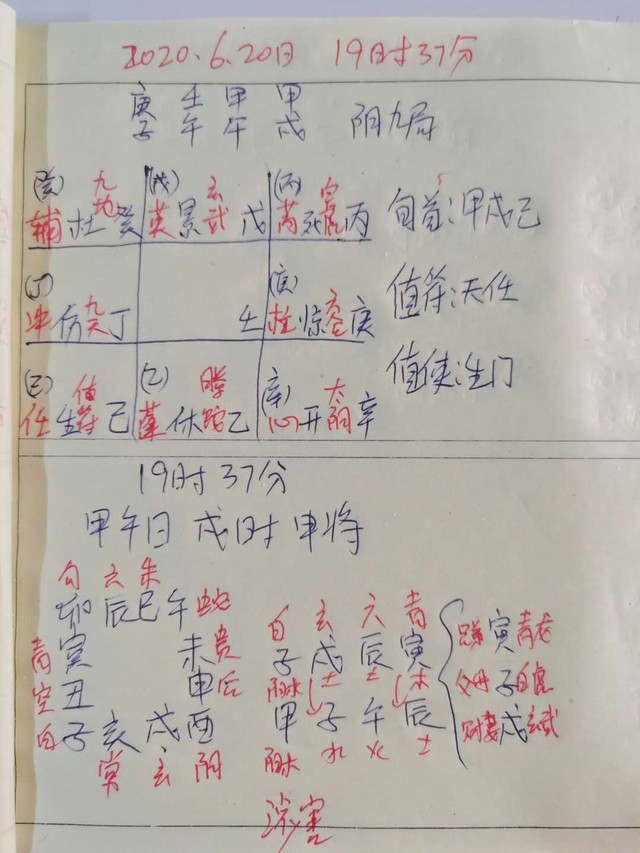 2020.6.20日 19时37分
庚 壬 甲 甲
子 午 午 戌 阴九局
(癸) 九地 (戊) 玄武 (丙) 白虎
辅 杜 癸 英 景 戊 芮 死 丙 旬首:甲戌己
(丁) (庚)
冲 伤 九天 丁 壬 柱 惊 庚 值符:天任
(己) 值符 (乙) 螣蛇 (辛) 太阴
任 生 己 蓬 休 乙 心 开 辛 值使:生门
19时37分
甲午日 戌时 申将
勾 六 朱
卯 辰 巳 午 蛇 白 玄 六 青
青 寅 未 贵 子 戌 辰 寅 寅 青龙
空 丑 申 后 阳水 土 土 木 父母 子 白虎
白 子 亥 戌 酉 甲 子 午 辰 财妻 戌 玄武
常 玄 阴 阳木 水 火 土
涉害